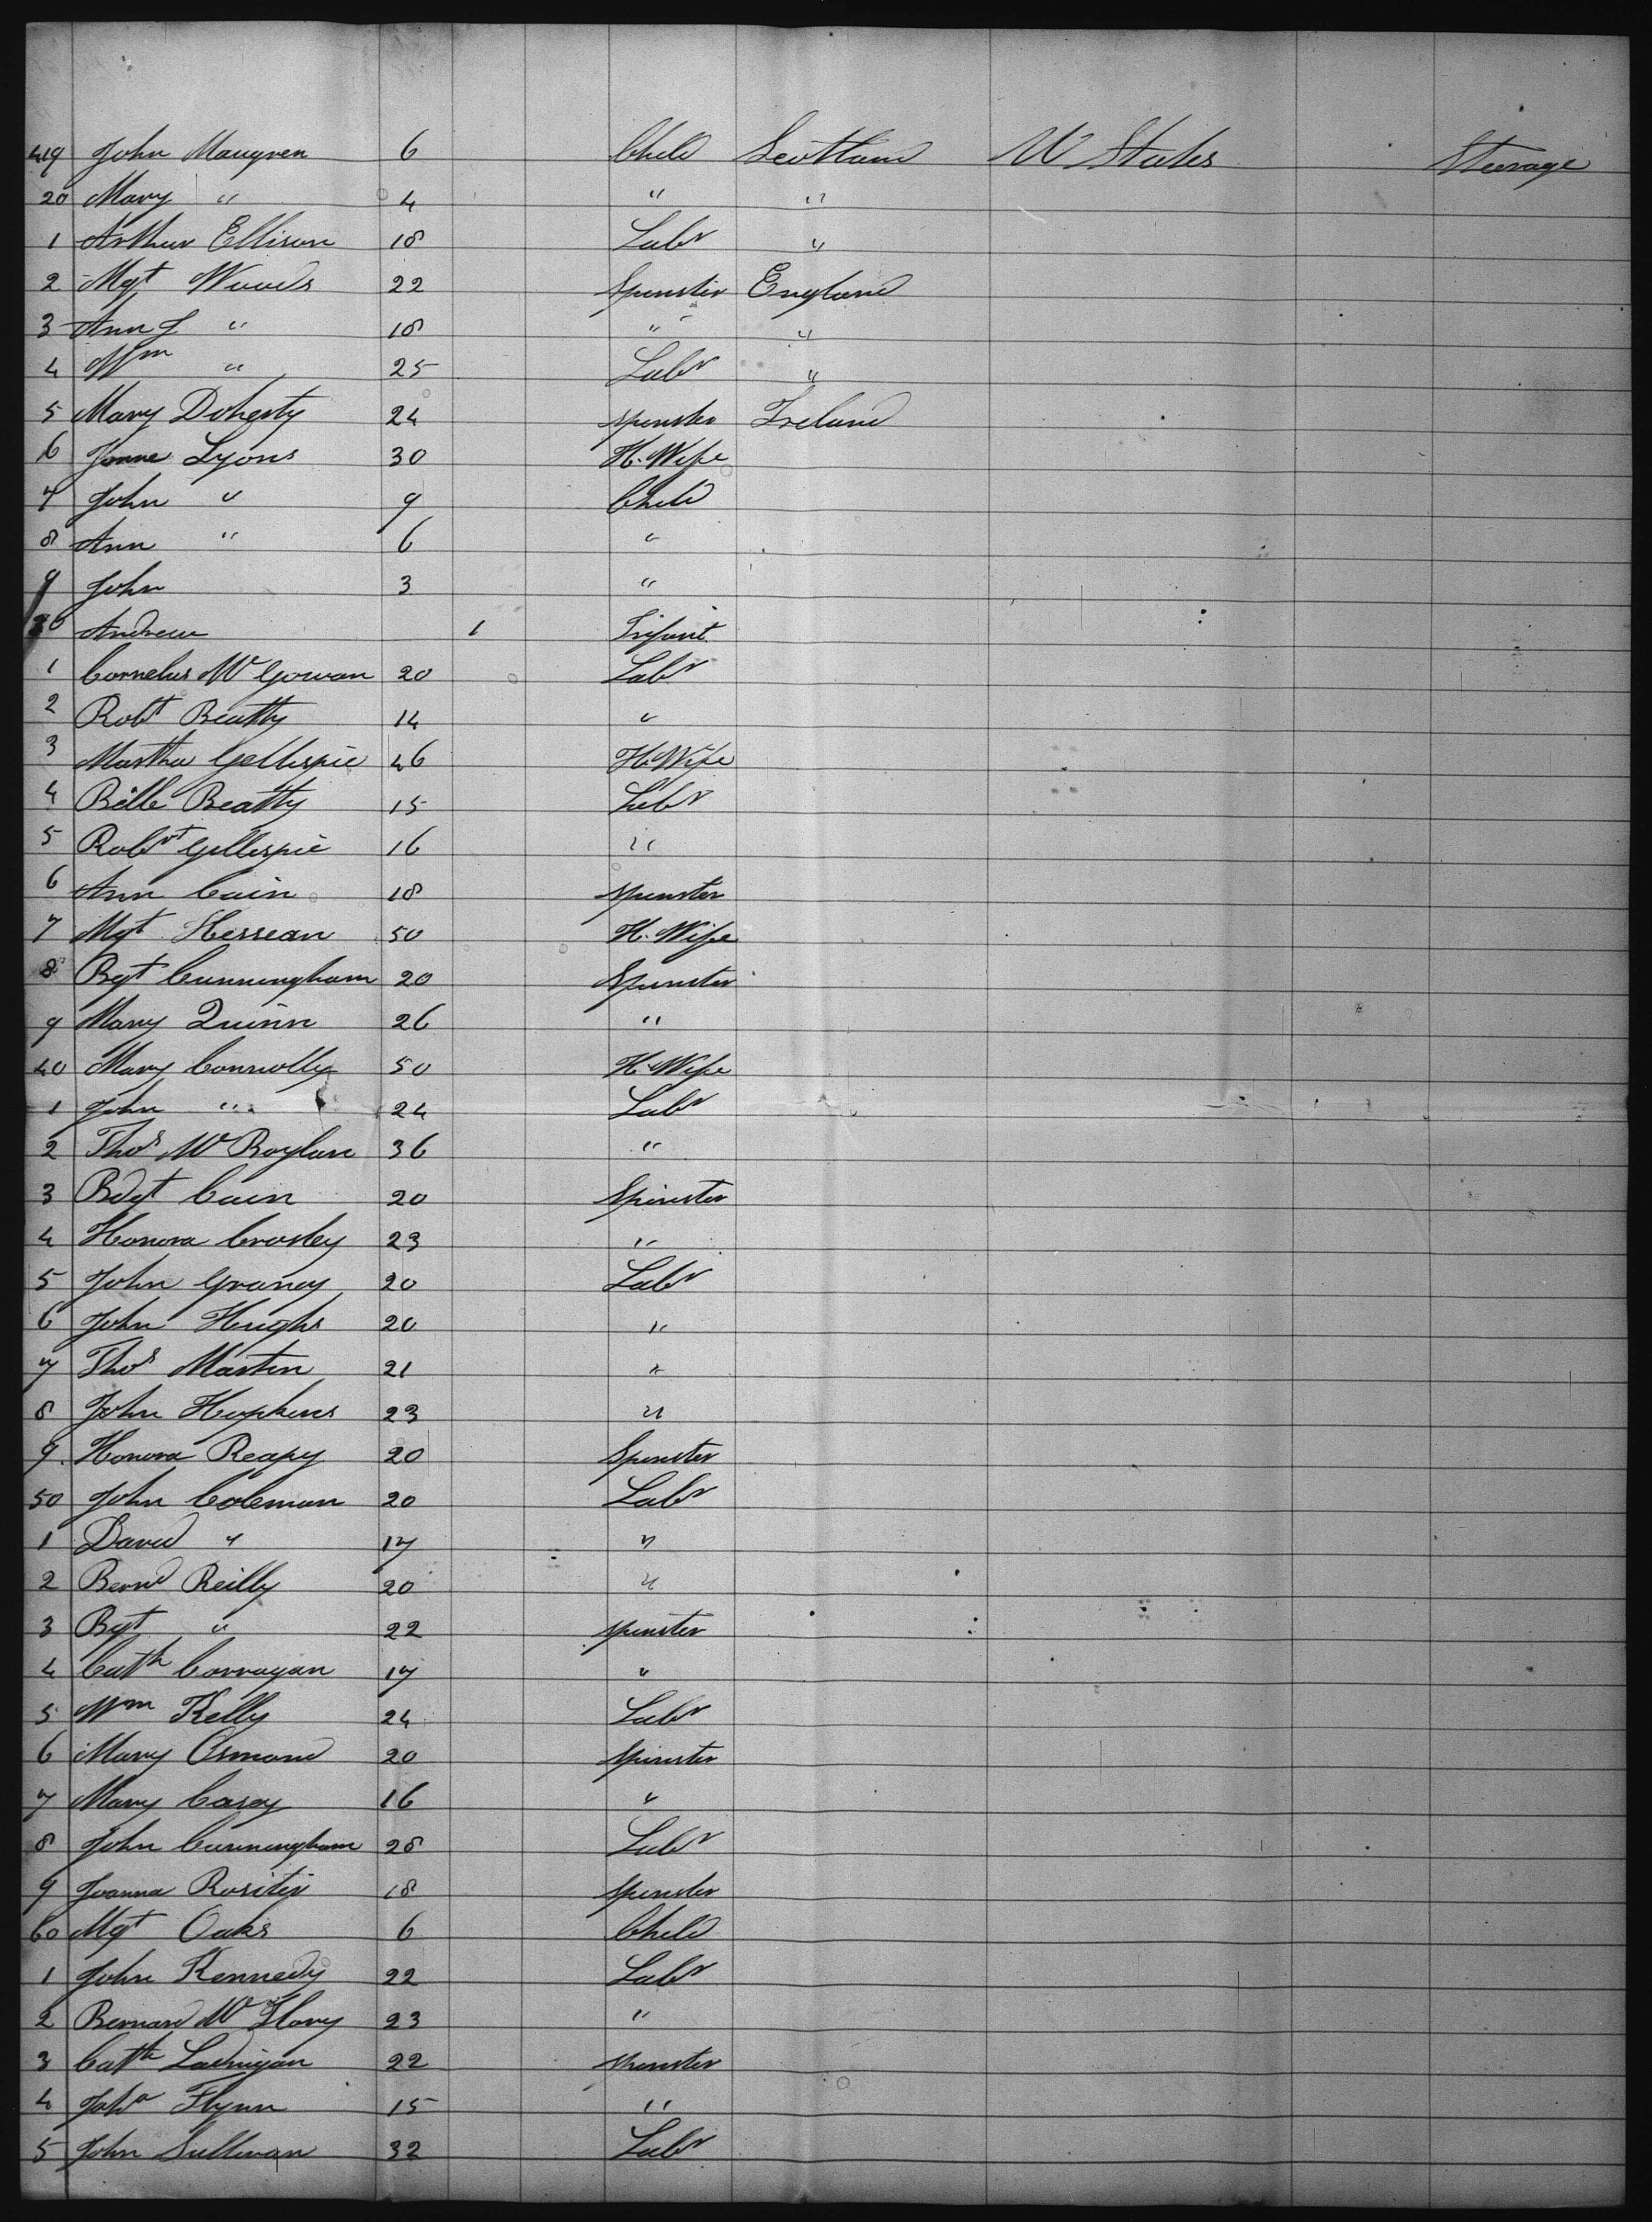 419 John Maugren 6 Child Scotland U States Steerage
20 Mary " 4 " "
1 Arthur Ellison 18 Labr "
2 Mgt Woods 22 Spinster England
3 Ann J " 18 " "
4 Wm " 25 Labr "
5 Mary Doherty 24 Spinster Ireland
6 Jane Lyons 30 H. Wife
7 John " 9 Child
8 Ann " 6 "
9 John 3 "
30 Andrew 1 Infant
1 Cornelius Mc Gowan 20 Labr
2 Robt Beatty 14 "
3 Martha Gellispie 46 H. Wife
4 Bille Beatty 15 Labr
5 Robrt Gellispie 16 "
6 Ann Cain 18 Spinster
7 Mgt Hessean 50 H. Wife
8 Bgt Cunningham 20 Spinster
9 Mary Quinn 26 "
40 Mary Connolly 50 H. Wife
1 John " 24 Labr
2 Thos Mc Boylan 36 "
3 Bdgt Cain 20 Spinster
4 Honora Crosley 23 "
5 John Graney 20 Labr
6 John Hughs 20 "
7 Thos Martin 21 "
8 John Hopkins 23 "
9 Honora Reapy 20 Spinster
50 John Coleman 20 Labr
1 David " 17 "
2 Bernd Reilly 20 "
3 Bgt " 22 Spinster
4 Cath Corragan 17 "
5 Wm Kelly 24 Labr
6 Mary Osmond 20 Spinster
7 Mary Casey 16 "
8 John Cunningham 28 Labr
9 Joanna Rositer 18 Spinster
60 Mgt Oaks 6 Child
1 John Kennedy 22 Labr
2 Bernard Mc 23 "
3 Cath 22 Spinster
4 Joha Flynn 15 "
5 John Sullivan 32 Labr